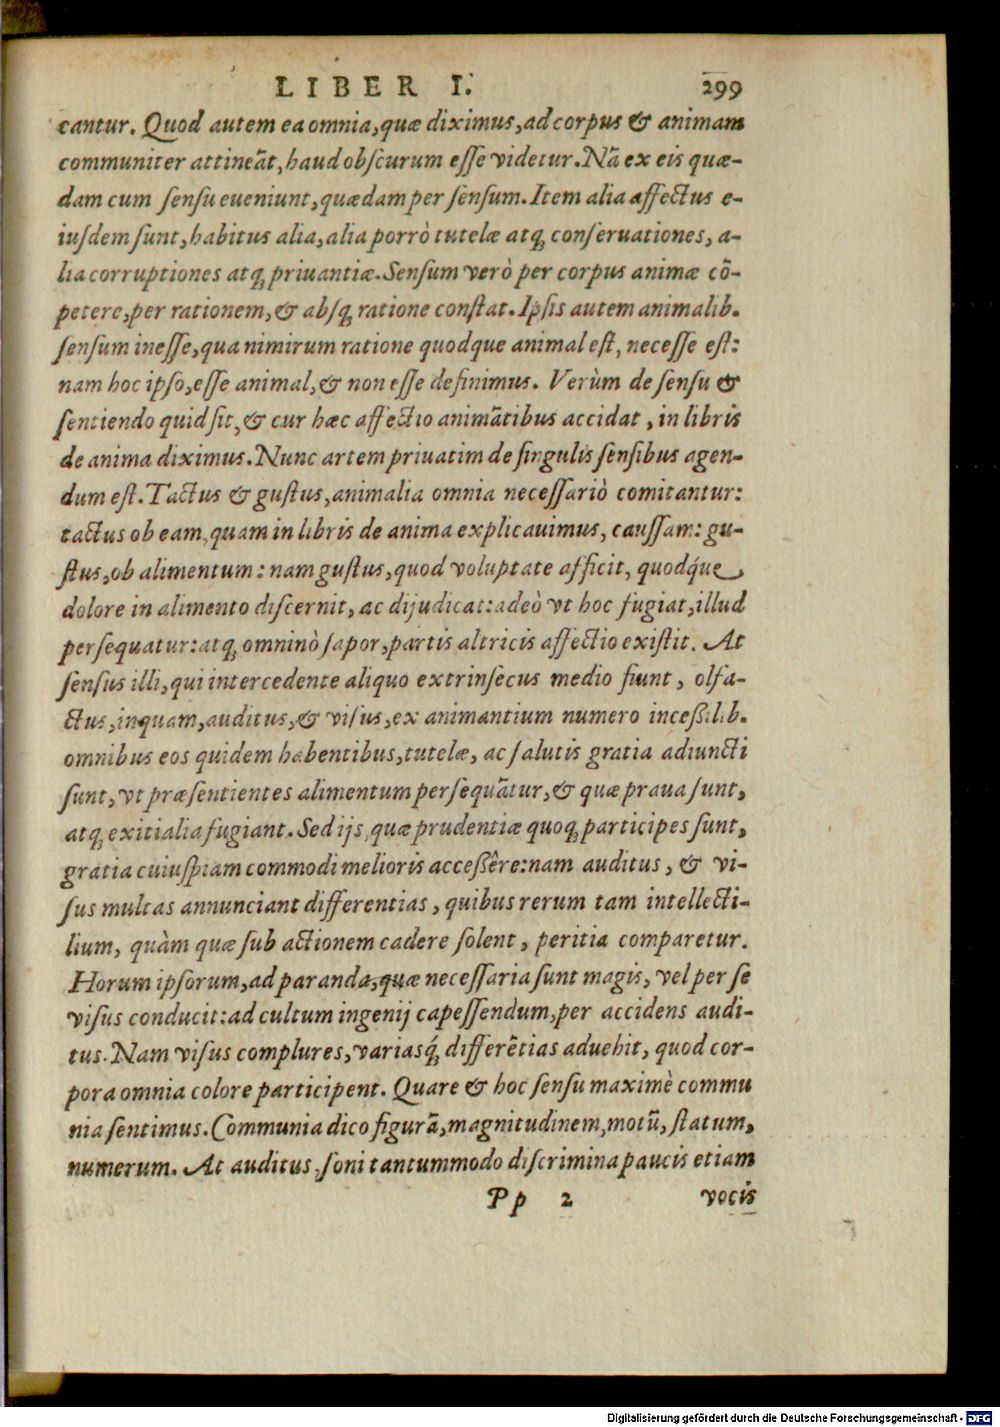 LIBER I. 299
cantur. Quod autem ea omnia, quæ diximus, ad corpus & animam
communiter attineāt, haud obscurum esse videtur. Nā ex eis quæ-
dam cum sensu eueniunt, quædam per sensum. Item alia affectus e-
iusdem sunt, habitus alia, alia porrò tutelæ atq; conseruationes, a-
lia corruptiones atq; priuantiæ. Sensum verò per corpus animæ cō-
petere, per rationem, & absq; ratione constat. Ipsis autem animalib.
sensum inesse, qua nimirum ratione quodque animal est, necesse est:
nam hoc ipso, esse animal, & non esse definimus. Verùm de sensu &
sentiendo quid sit, & cur hæc affectio animātibus accidat, in libris
de anima diximus. Nunc artem priuatim de singulis sensibus agen-
dum est. Tactus & gustus, animalia omnia necessariò comitantur:
tactus ob eam, quam in libris de anima explicauimus, caussam: gu-
stus, ob alimentum: nam gustus, quod voluptate afficit, quodq́ue
dolore in alimento discernit, ac dijudicat: adeò vt hoc fugiat, illud
persequatur: atq; omninò sapor, partis altricis affectio existit. At
sensus illi, qui intercedente aliquo extrinsecus medio fiunt, olfa-
ctus, inquam, auditus, & visus, ex animantium numero inceßilib.
omnibus eos quidem habentibus, tutelæ, ac salutis gratia adiuncti
sunt, vt præsentientes alimentum persequātur, & quæ praua sunt,
atq; exitialia fugiant. Sed ijs, quæ prudentiæ quoq; participes sunt,
gratia cuiuspiam commodi melioris acceßêre: nam auditus, & vi-
sus multas annunciant differentias, quibus rerum tam intellecti-
lium, quàm quæ sub actionem cadere solent, peritia comparetur.
Horum ipsorum, ad paranda, quæ necessaria sunt magis, vel per se
visus conducit: ad cultum ingenij capessendum, per accidens audi-
tus. Nam visus complures, variasq́; differētias aduehit, quod cor-
pora omnia colore participent. Quare & hoc sensu maximè commu
nia sentimus. Communia dico figurā, magnitudinem, motū, statum,
numerum. At auditus, soni tantummodo discrimina paucis etiam
Pp 2 vocis
Digitalisierung gefördert durch die Deutsche Forschungsgemeinschaft - DFG